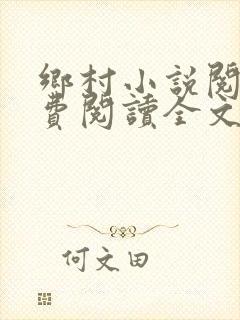 鄉村小説閱
費閱讀全文
何文田